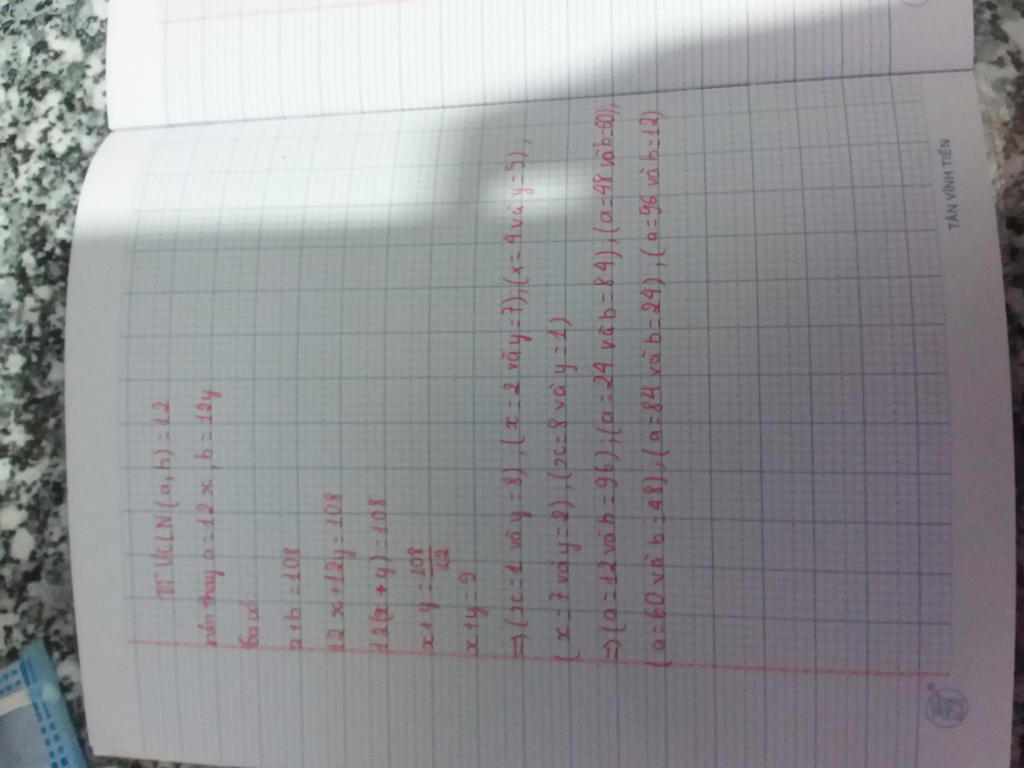 Vì ƯCLN (a, b) = 12
nên thay a = 12 x, b = 12y
Ta có:
a + b = 108
12 x + 12y = 108
12(x + y) = 108
x + y = 108/12
x + y = 9
=> (x = 1 và y = 8), (x = 2 và y = 7), (x = 4 và y = 5),
(x = 7 và y = 2), (x = 8 và y = 1)
=> (a = 12 và b = 96), (a = 24 và b = 84), (a = 48 và b = 60),
(a = 60 và b = 48), (a = 84 và b = 24), (a = 96 và b = 12)
TÂN VĨNH TIẾN